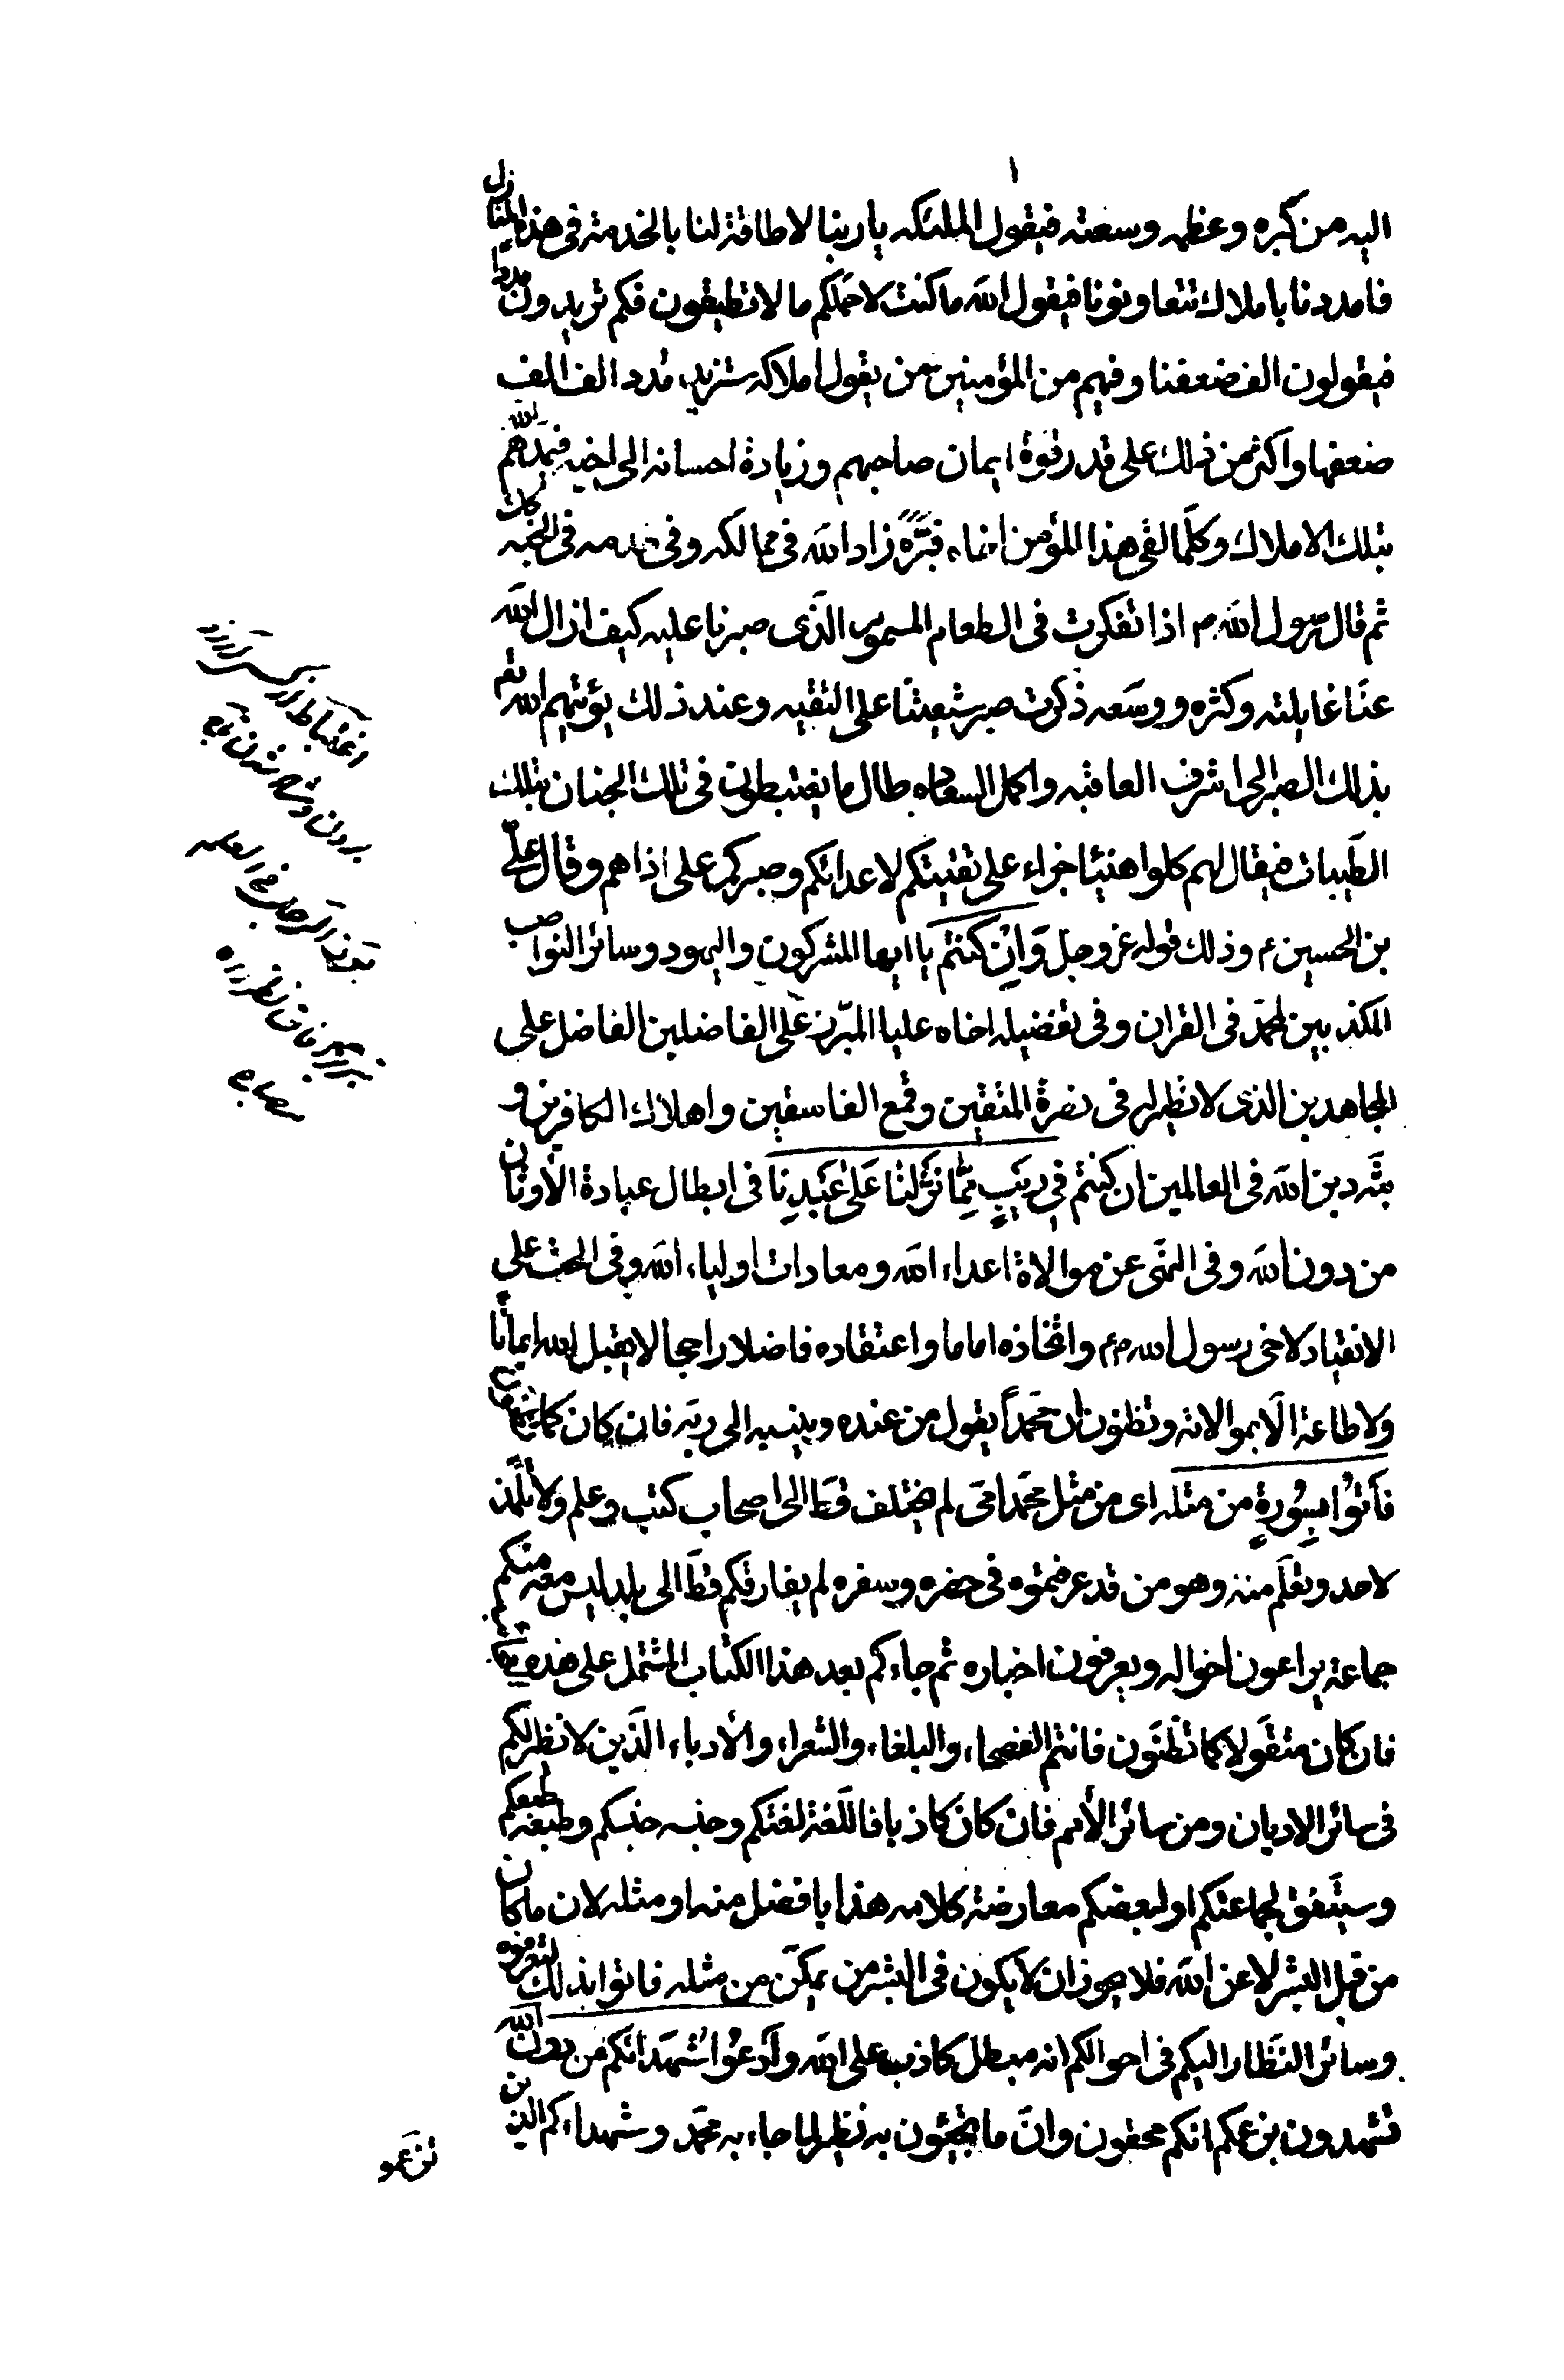 اليه من كبره وعظمه وسعته فيقول الملئكه يا ربنا لا طاقة لنا بالخدمة فى هذه المنازل
فامددنا باملاك تتعاونونا فيقول الله ما كنت لاحملكم ما لا تطيقون فكم تريدون مددا
فيقولون الف ضعفنا وفيهم من المؤمنين من يقول املاكه ستزيد مدد الف الف
ضعفها واكثر من ذلك على قدر قوة ايمان صاحبهم وزيادة احسانه الى اخيه فيمدهم الله
بتلك الاملاك وكلما لقى هذا المؤمن اخاه فبرّه زاد الله فى ممالكه وفى خدمه فى الجنه كك
ثم قال رسول الله ص اذا تفكرت فى الطعام المسموم الذى صبرنا عليه كيف ازال الله
عنا غايلته وكثره ووسعه ذكرت صبر شيعتنا على التقيه وعند ذلك يؤتيهم الله تع
بذلك الصبر الى اشرف العاقبه واكمل السعاده طال ما يغتبطون فى تلك الجنان بتلك
الطيبات فيقال لهم كلوا هنيئا جزاء على تقيتكم لاعدائكم وصبركم على اذاهم وقال على
بن الحسين ع وذلك قوله عز وجل وَاِنْ كُنتُم يا ايها المشركون واليهود وسائر النواصب
المكذبين لمحمد فى القران وفى تفضيله اخاه عليا المبرّز على الفاضلين الفاضل على
المجاهدين الذى لا نظير له فى نصرة المتقين وقمع الفاسقين واهلاك الكافرين و
بثّه دين الله فى العالمين ان كنتم فِى رَيْبٍ مِمّا نَزّلنا عَلى عَبْدِنا فى ابطال عبادة الأوثان
من دون الله وفى النهى عن موالاة اعداء الله ومعادات اولياء الله وفى الحث على
الانقياد لاخى رسول الله ص واتخاذه اماما واعتقاده فاضلا راجحا لا يقبل الله ايمانا
ولا طاعة الا بموالاته وتظنون ان محمداً يقول من عنده وينسبه الى ربه فان كان كما
فَأتُوا بِسُورةٍ من مثله اى من مثل محمد امى لم يختلف قط الى اصحاب كتب وعلم ولا تلمّذ
لاحد وتعلّم منه وهو من قد عرفتموه فى حضره وسفره لم يفارقكم قط الى بلد ليس معه منكم
جماعة يراعون احواله ويعرفون اخباره ثم جاءكم بعد هذا الكتاب المشتمل على هذه
فان كان متقولا كما تظنون فانتم الفصحاء والبلغاء والشعراء والأدباء الذين لا نظير لكم
فى سائر الاديان ومن سائر الأمم فان كان كاذبا فاللغة لغتكم وجنسه جنسكم وطبعه طبعكم
وسيتفق لجماعتكم او لبعضكم معارضة كلامه هذا بافضل منه او مثله لان ما كان
من قبل البشر لا عن الله فلا يجوز ان لا يكون فى البشر من يمكّن من مثله فاتوا بذلك لتعرفوه
وسائر النظار اليكم فى احوالكم انه مبطل كاذب على الله وادْعُوا شُهَداءَكم من دون الله
تشهدون بزعمكم انكم محقون وانّ ما تجيئون به نظير لما جاء به محمد وشهداءكم الذين
تزعمو